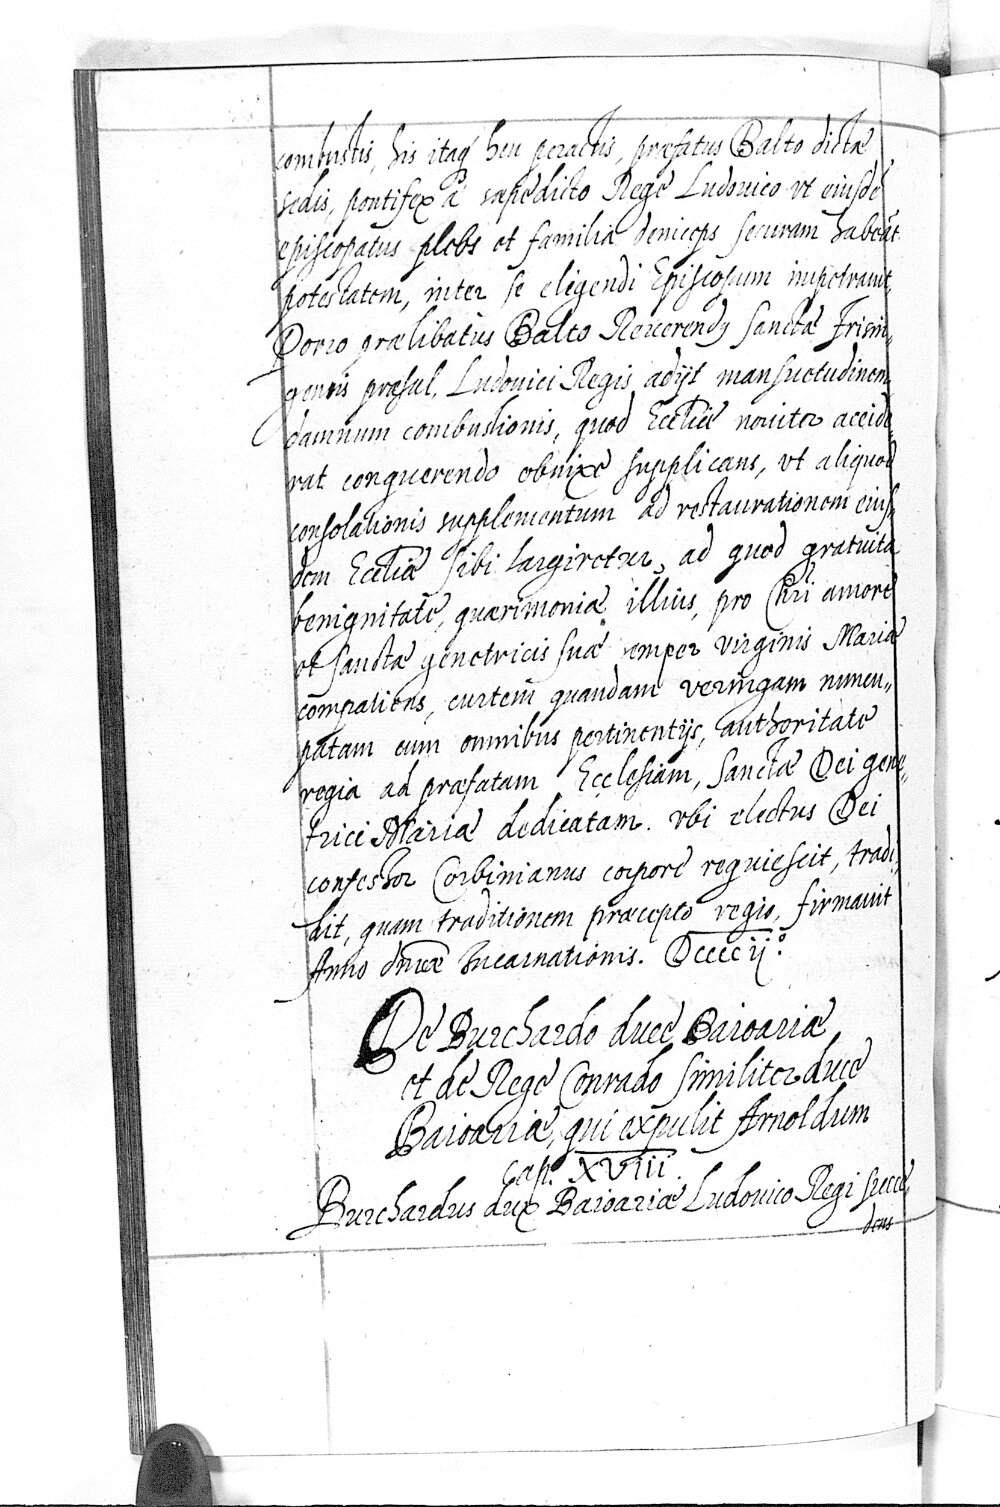 combustis, his itaq heu peractis, præfatus Balto dictæ
sedis, pontifex à sæpedicto Rege Ludovico vt eiusdē
episcopatus plebs et familia deniceps securam habeāt
potestatem, inter se eligendi Episcopum impetravit,
Porro prælibatus Balto Reverendy Sanctæ Frisin„
gensis præsul, Ludovici Regis adijt mansuetudinem
damnum combustionis, quod Eccliæ noviter accide„
rat conquerendo obnixe supplicans, vt aliquod
consolationis supplementum ad restaurationem eius„
dem Eccliæ sibi largiretur, ad quod gratuita
benignitate, quærimoniæ illius, pro Chri amore
et sanctæ genetricis suæ semper virginis Mariæ
compatiens, curtem quandam veringam nuncu„
patam cum omnibus pertinentijs, authoritate
regia ad præfatam Ecclesiam, Sanctæ Dei gene„
trici Mariæ dedicatam. vbi electus Dei
confessor Corbinianus corpore requiescit, tradi„
dit, quam traditionem præcepto regio, firmavit
Anno dnicæ Incarnationis. Dccccijº.
De Burchardo duce Baioariæ
et de Rege Conrado similiter duce
Baioariæ, qui expulit Arnoldum
cap. XVIII.
Burchardus dux Baioariæ Ludovico Regi succe„
dens